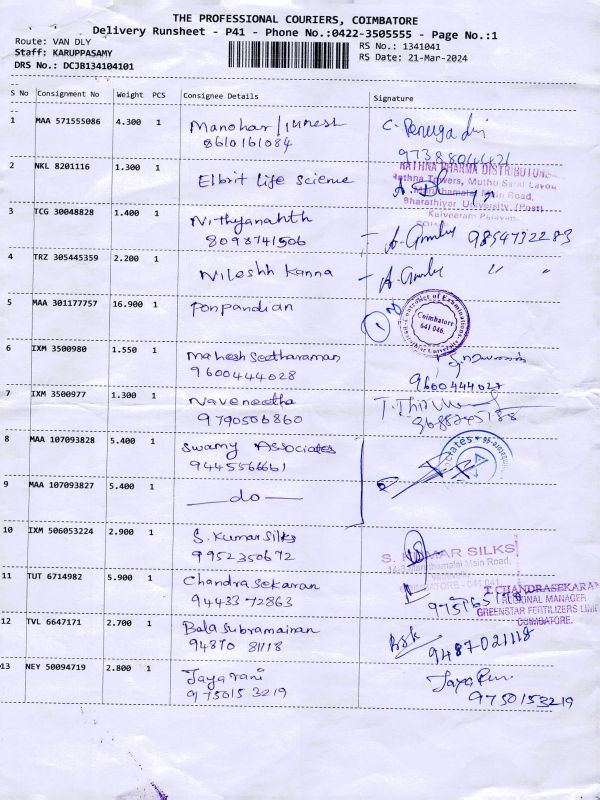 THE PROFESSIONAL COURIERS, COIMBATORE
Delivery Runsheet - P41 - Phone No.:0422-3505555 - Page No.:1
Route: VAN DLY RS No.: 1341041
Staff: KARUPPASAMY RS Date: 21-Mar-2024
DRS No.: DCJB134104101
S No Consignment No Weight PCS Consignee Details Signature
1 MAA 571555086 4.300 1 Manohar /
8610161084
9738804421
2 NKL 8201116 1.300 1 Elbrit life science
RATHNA PHARMA DISTRIBUTORS
Rathna Towers, Muthu Layou
Main Road,
Bharathiyar University (Post)
3 TCG 30048828 1.400 1 Nithyananth
8098741506
4 TRZ 305445359 2.200 1 Nileshh Kanna " "
5 MAA 301177757 16.900 1 Ponpandian
Controller of Examinations
Coimbatore
641 046.
6 IXM 3500980 1.550 1 Mahesh Seetharaman
9600444028 9600444027
7 IXM 3500977 1.300 1 Navaneetha
9790506860
8 MAA 107093828 5.400 1 Swamy Associates
9445566661
9 MAA 107093827 5.400 1 — do —
10 IXM 506053224 2.900 1 S. Kumar Silks
9952350672
S. KUMAR SILKS
Main Road,
11 TUT 6714982 5.900 1 Chandrasekaran
9443372863
T CHANDRASEKARA
REGIONAL MANAGER
GREENSTAR FERTILIZERS LIMI
COIMBATORE.
12 TVL 6647171 2.700 1 Bala Subramainan
94870 81118 9487021118
13 NEY 50094719 2.800 1 Jayarani
9750153219 9750153219